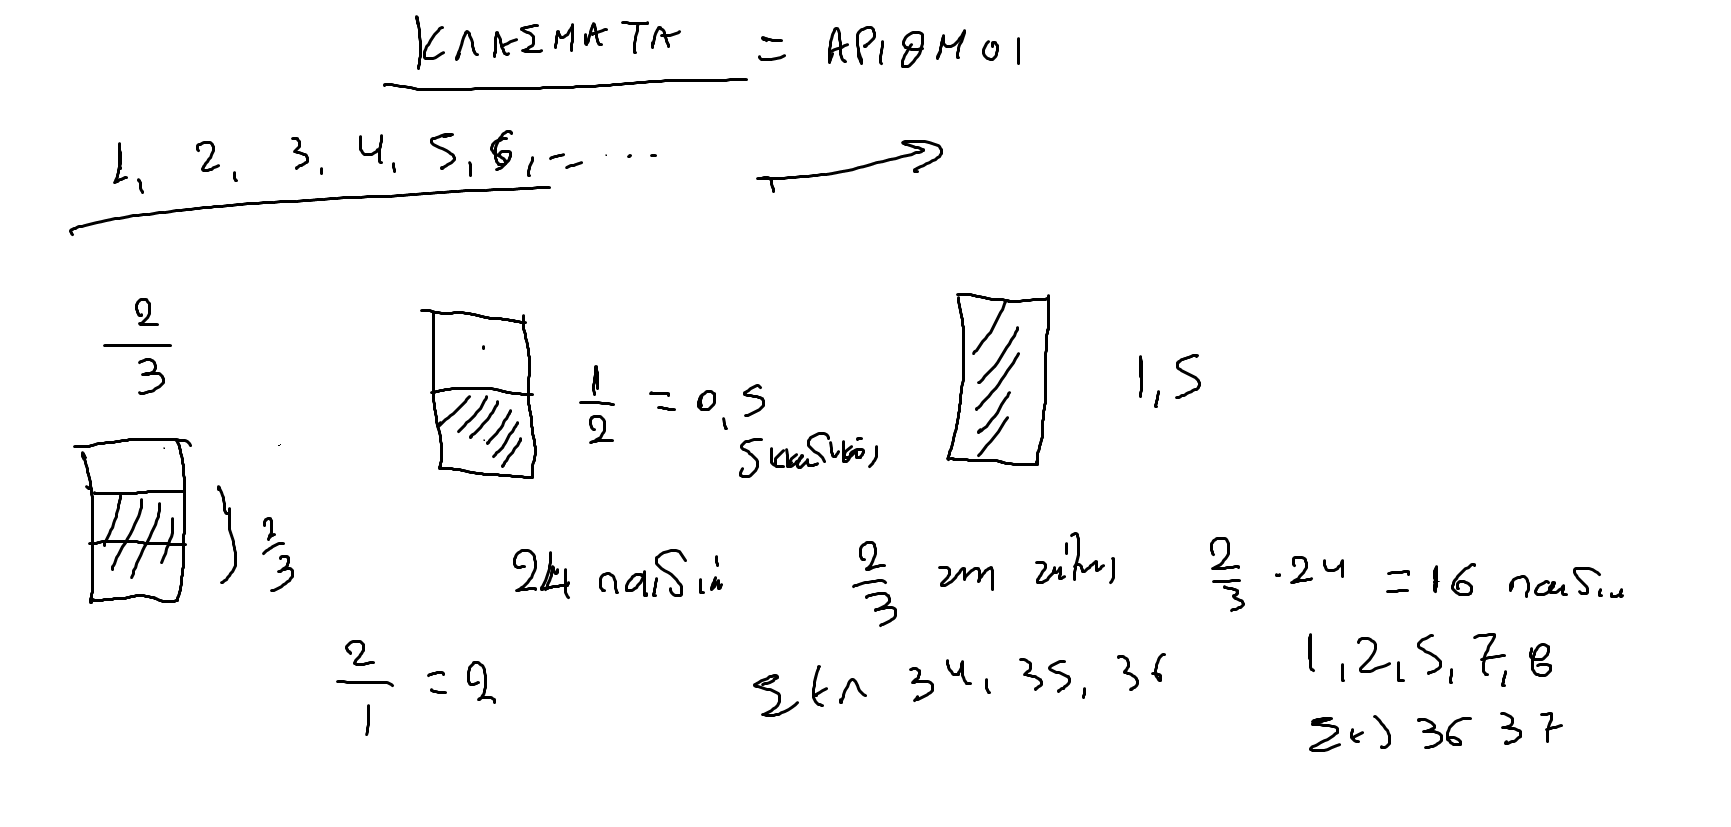 ΚΛΑΣΜΑΤΑ = ΑΡΙΘΜΟΙ
1, 2, 3, 4, 5, 6, ...
2/3
1/2 = 0,5
δεκαδικός
1,5
2/3
24 παιδιά 2/3 στην 2/3 · 24 = 16 παιδιά
2/1 = 2
Σελ 34, 35, 36
1, 2, 5, 7, 8
Σελ 36 37